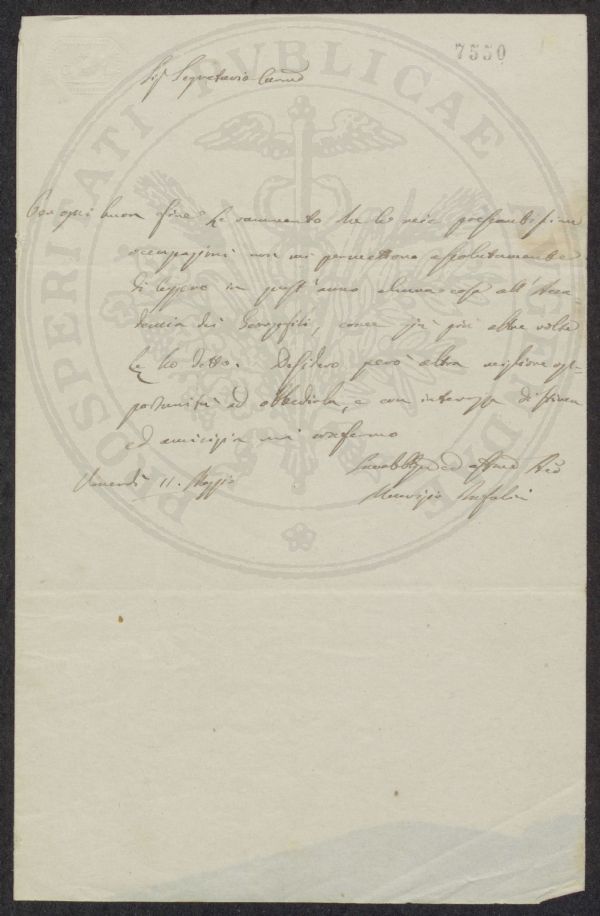 7550
Sig.r Segretario Car.mo
Con ogni buon fine Le rammento che le mie pressantissime
occupazioni non mi permettono assolutamente
di leggere in quest'anno alcuna cosa all'Acca-
demia dei Georgofili, come già più altre volte
Le ho detto. Desidero però altra migliore op-
portunità ad obbedirla, e con interezza di stima
ed amicizia mi confermo
Venerdì 11. Maggio
Maurizio Bufalini
PROSPERITATI PVBLICAE AVGENDAE